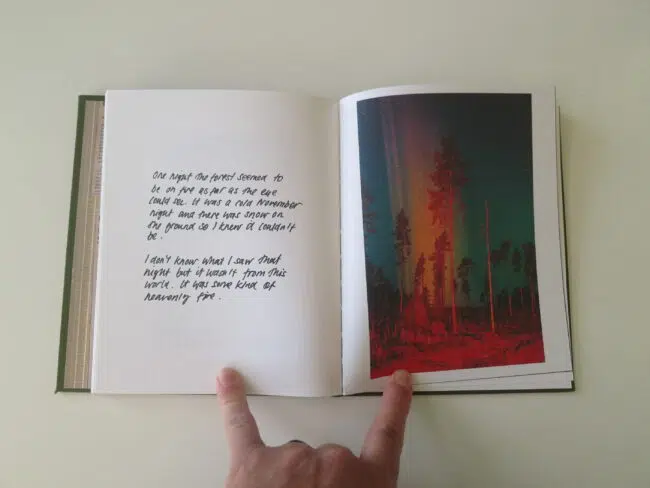 One night the forest seemed to
be on fire as far as the eye
could see. It was a cold November
night and there was snow on
the ground so I knew it couldn't
be.
I don't know what I saw that
night but it wasn't from this
world. It was some kind of
heavenly fire.